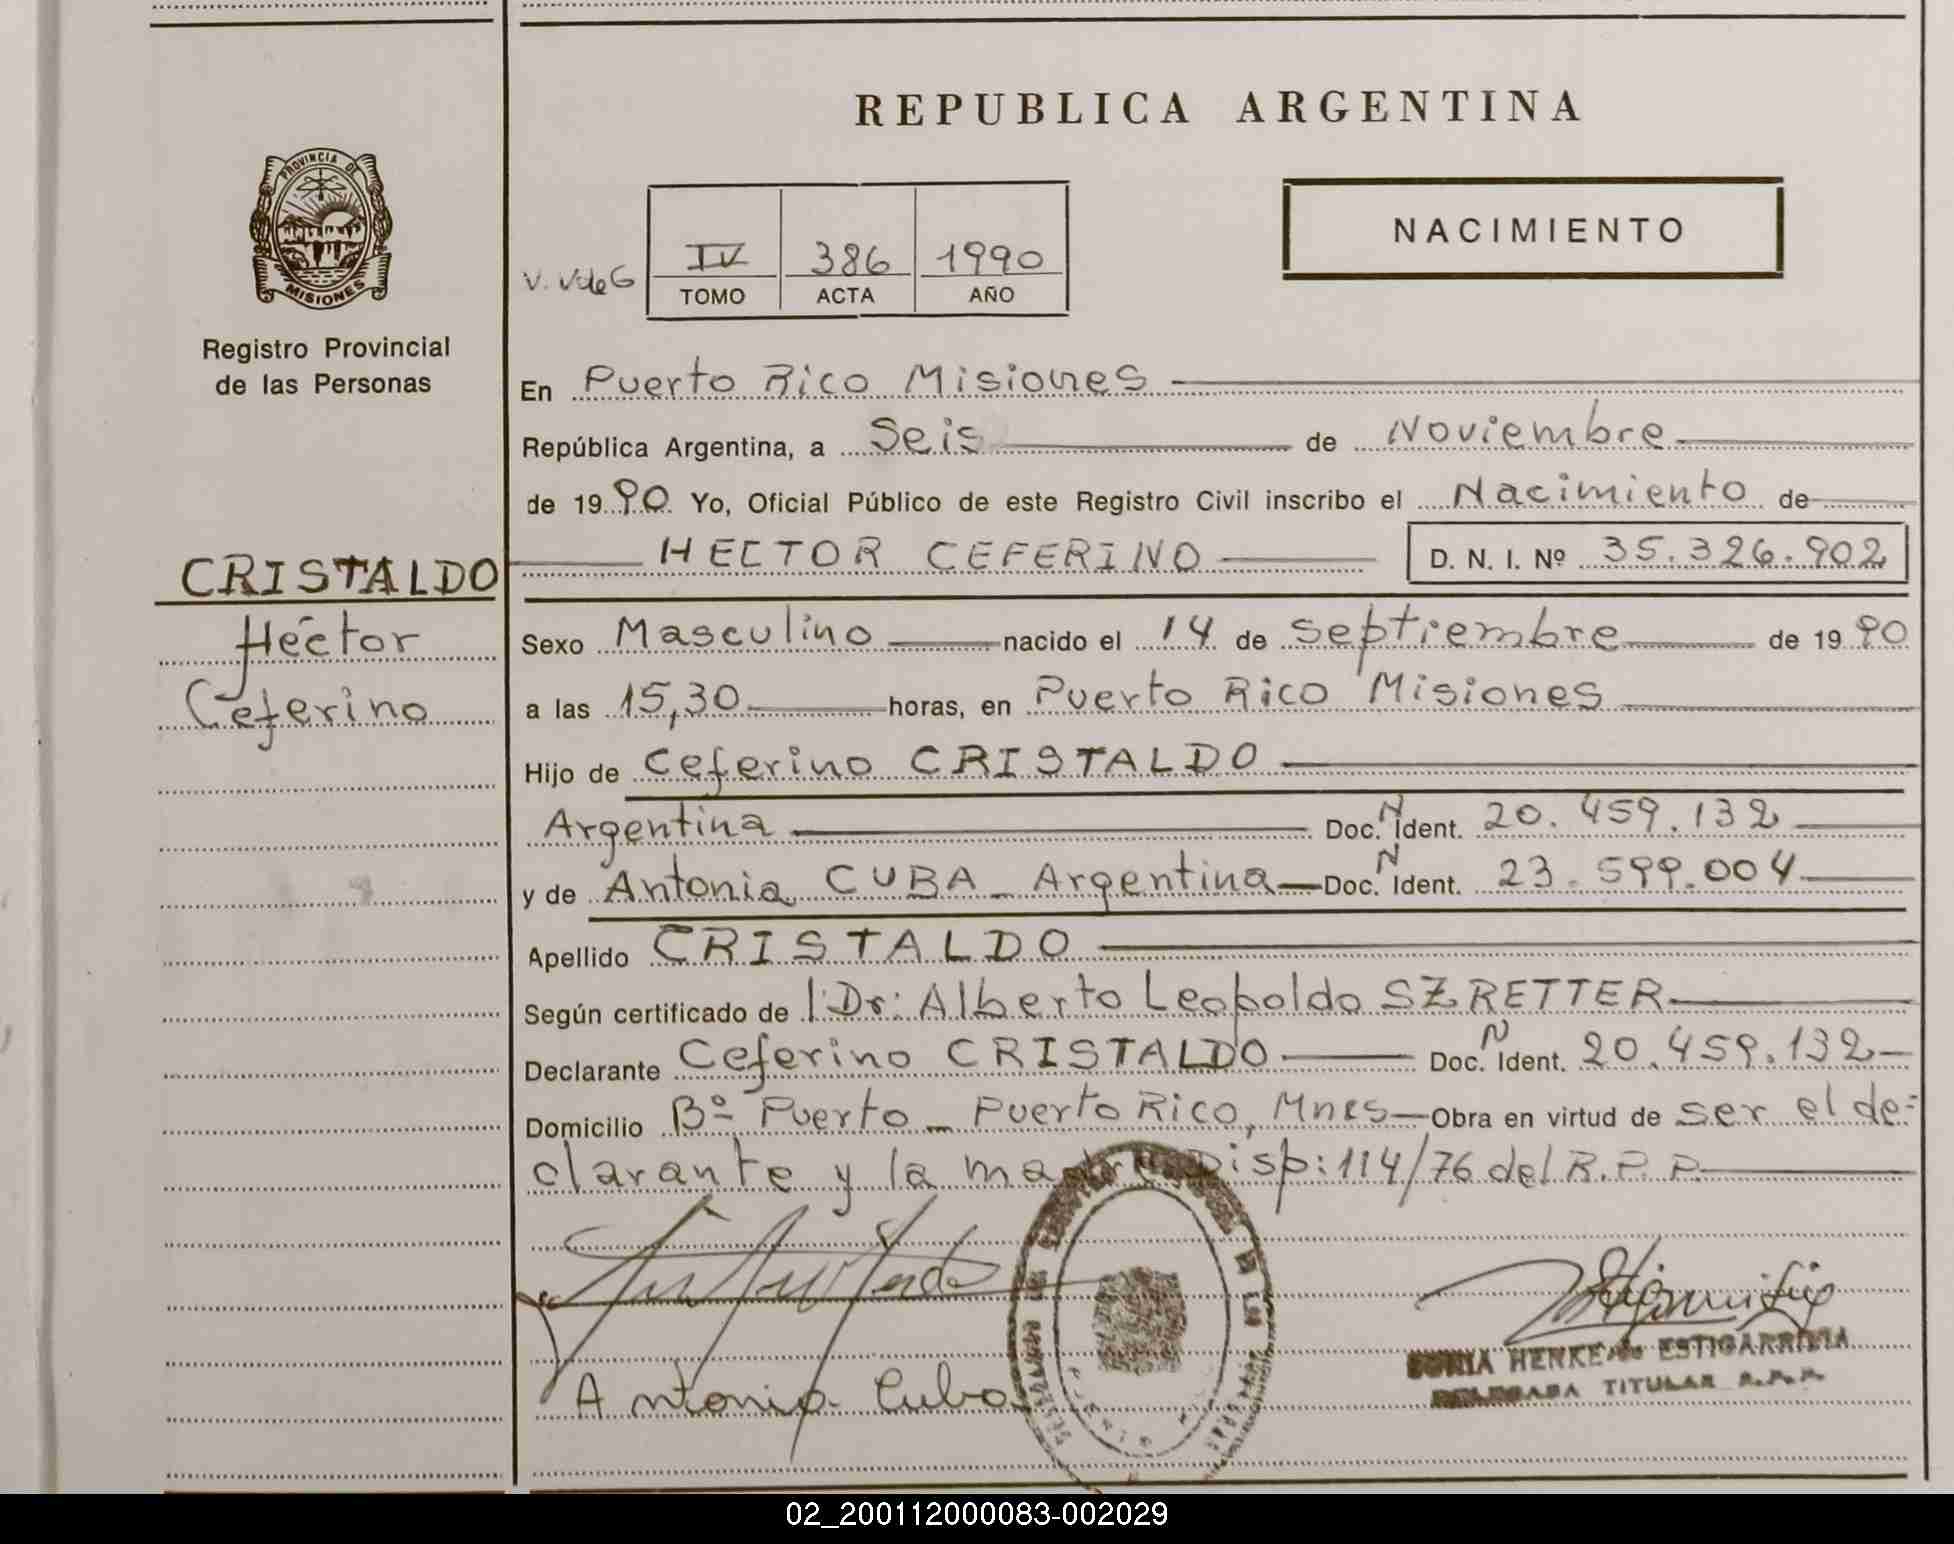 REPUBLICA ARGENTINA
PROVINCIA DE
MISIONES
Registro Provincial
de las Personas
NACIMIENTO
V. VdeG
IV 386 1990
TOMO ACTA AÑO
En Puerto Rico Misiones
República Argentina, a Seis de Noviembre
de 1990 Yo, Oficial Público de este Registro Civil inscribo el Nacimiento de
CRISTALDO
Héctor
Ceferino
HECTOR CEFERINO D. N. I. Nº 35.326.902
Sexo Masculino nacido el 14 de septiembre de 1990
a las 15,30 horas, en Puerto Rico Misiones
Hijo de Ceferino CRISTALDO
Argentina Doc. N Ident. 20.459.132
y de Antonia CUBA - Argentina Doc. N Ident. 23.599.004
Apellido CRISTALDO
Según certificado de l Dr: Alberto Leopoldo SZRETTER
Declarante Ceferino CRISTALDO Doc. N Ident. 20.459.132
Domicilio Bº Puerto - Puerto Rico, Mnes Obra en virtud de ser el de=
clarante y la madre Disp: 114/76 del R.P.P.
Antonia Cuba
SONIA HENKE de ESTIGARRIBIA
DELEGADA TITULAR R.P.P.
02_200112000083-002029